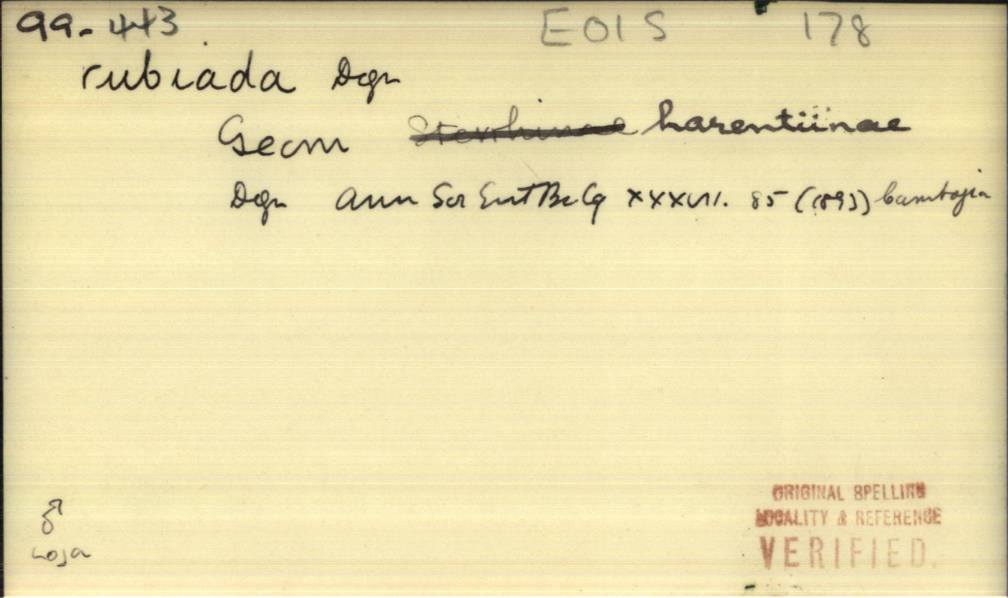 99-443 EOIS 178
rubiada Dgn
Geom Sterrhinae Larentiinae
Dgn Ann Soc Ent Belg XXXVII. 85 (1893) Cambogia
♂
Loja
ORIGINAL SPELLING
LOCALITY & REFERENCE
VERIFIED.